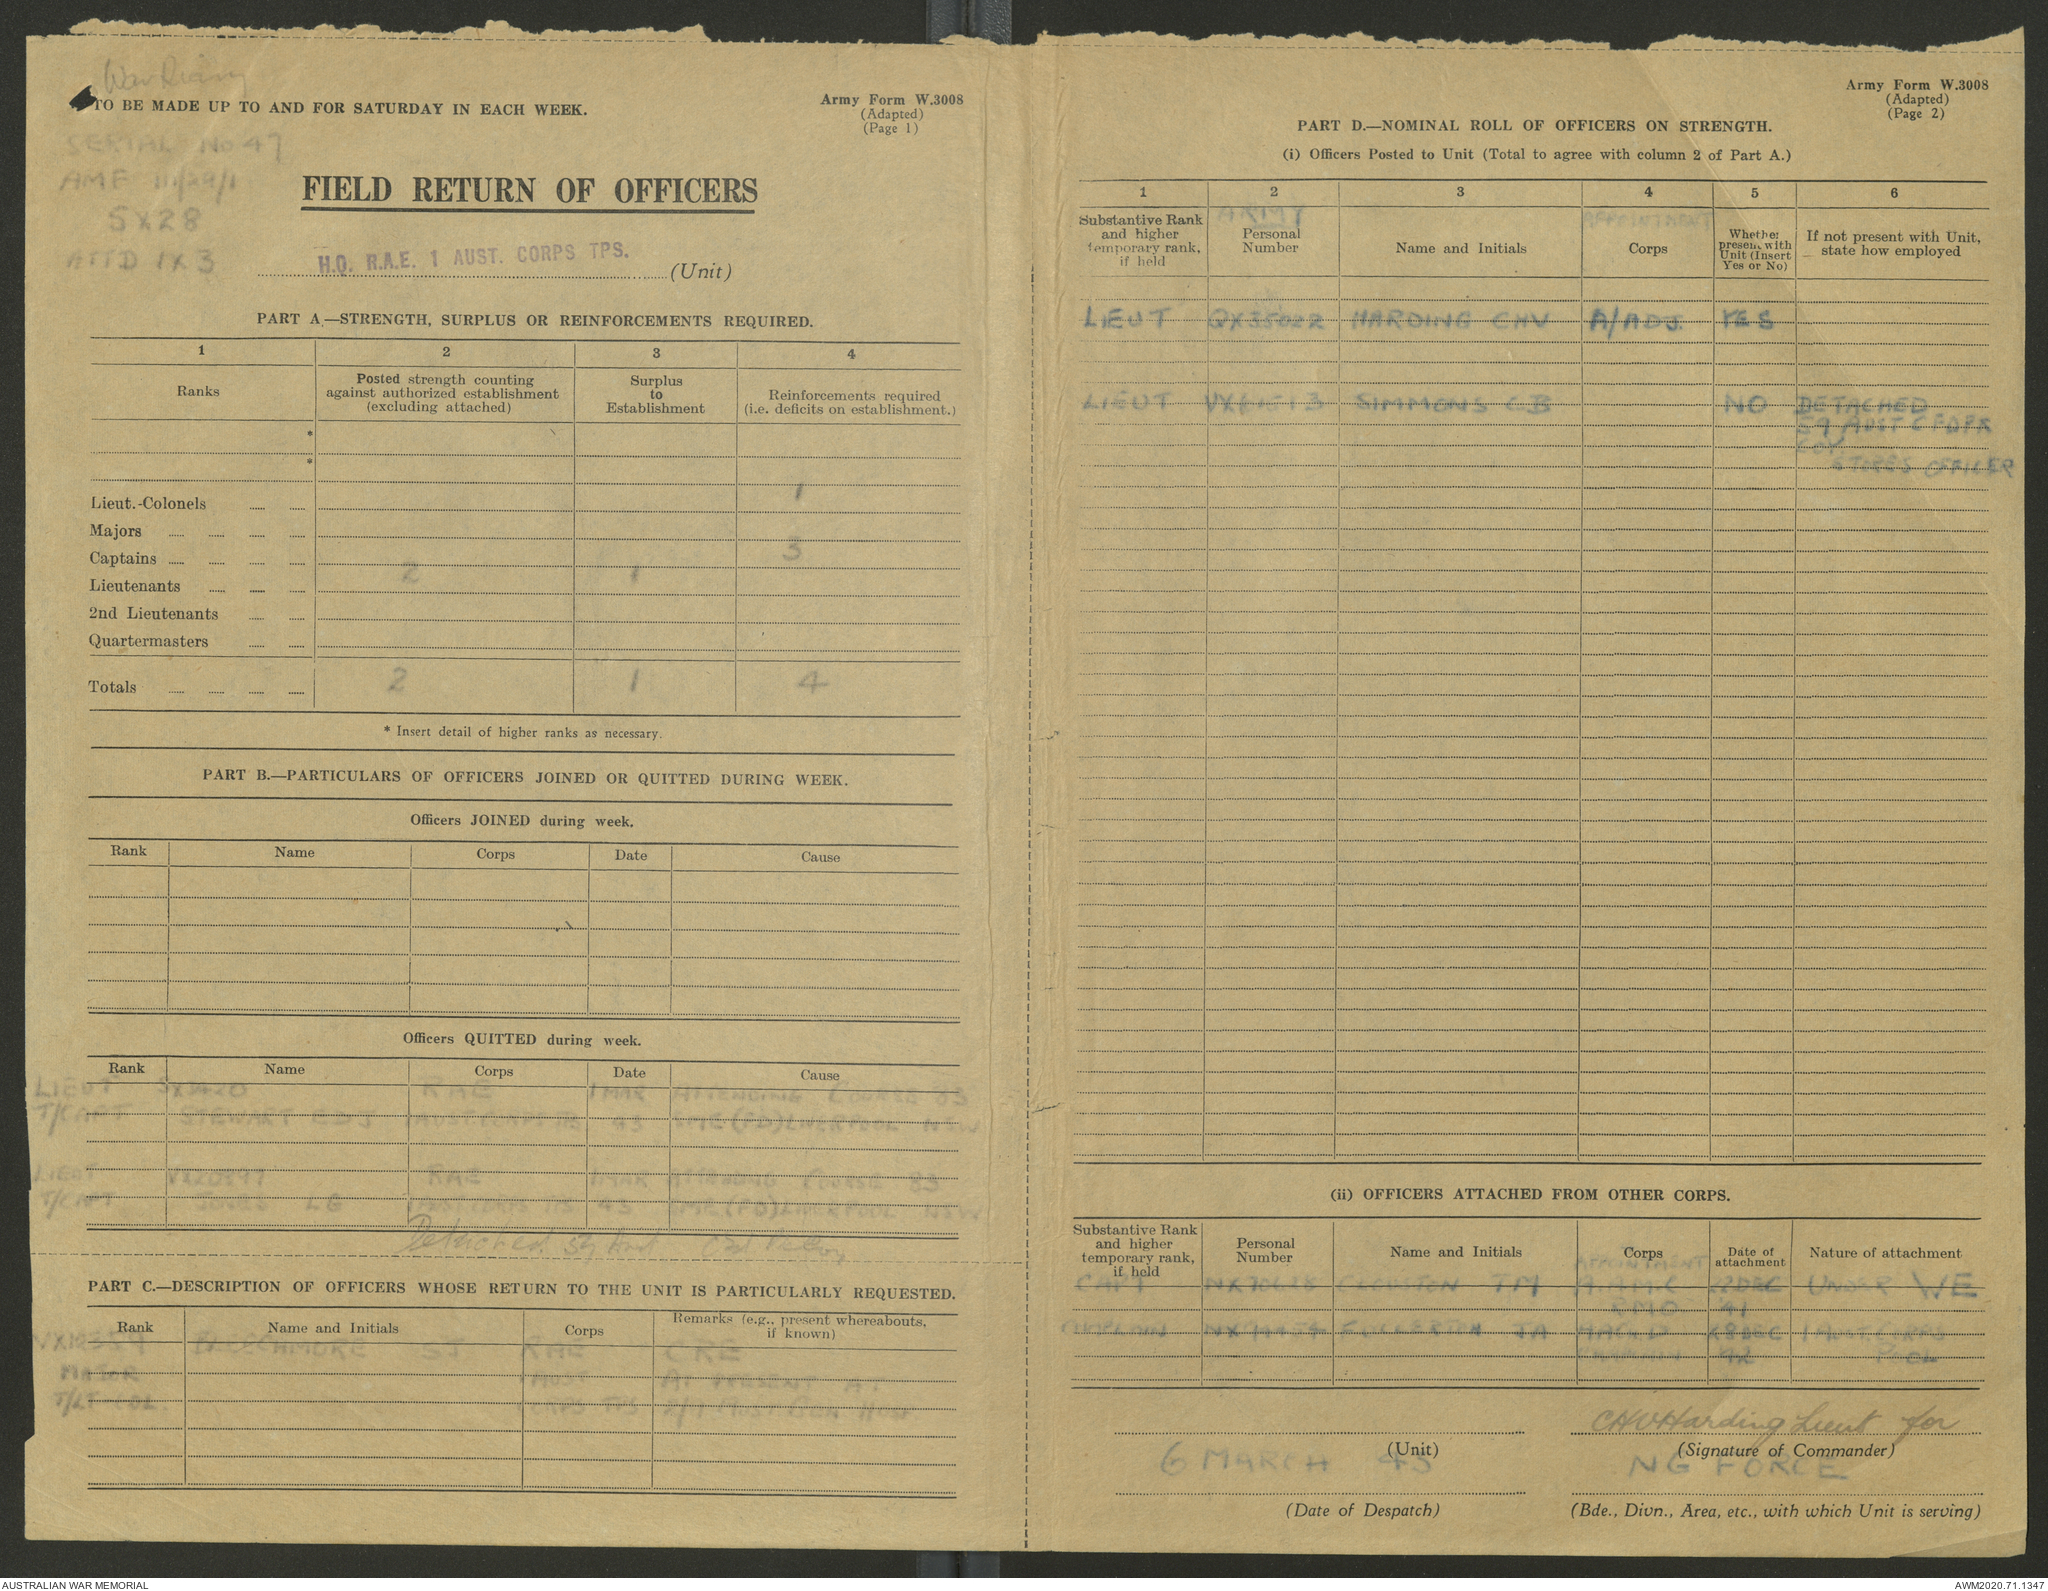 War Diary
TO BE MADE UP TO AND FOR SATURDAY IN EACH WEEK.
Army Form W.3008
(Adapted)
(Page 1)
SERIAL No 47
AMF
5X28
ATTD 1X3
FIELD RETURN OF OFFICERS
H.Q. R.A.E. 1 AUST. CORPS TPS.
(Unit)
PART A.—STRENGTH, SURPLUS OR REINFORCEMENTS REQUIRED.
1 2 3 4
Ranks
Posted strength counting
against authorized establishment
(excluding attached)
Surplus
to
Establishment
Reinforcements required
(i.e. deficits on establishment.)
*
*
Lieut.-Colonels 1
Majors
Captains 3
Lieutenants 2 1
2nd Lieutenants
Quartermasters
Totals 2 1 4
* Insert detail of higher ranks as necessary.
PART B.—PARTICULARS OF OFFICERS JOINED OR QUITTED DURING WEEK.
Officers JOINED during week.
Rank Name Corps Date Cause
Officers QUITTED during week.
Rank Name Corps Date Cause
LIEUT RAE 1 MAR ATTENDING COURSE 83
T/CAPT STEWART 1 AUST CORPS TPS 43 SME (FD) LIVERPOOL NSW
LIEUT RAE 1 MAR ATTENDING COURSE 83
T/CAPT JONES LG 1 AUST CORPS TPS 43 SME (FD) LIVERPOOL NSW
Detached
PART C.—DESCRIPTION OF OFFICERS WHOSE RETURN TO THE UNIT IS PARTICULARLY REQUESTED.
Rank Name and Initials Corps
Remarks (e.g., present whereabouts,
if known)
RAE CRE
MAJOR 1 AUST AT PRESENT AT
T/LT-COL. CORPS TPS 2/9 AUST GEN HOSP
Army Form W.3008
(Adapted)
(Page 2)
PART D.—NOMINAL ROLL OF OFFICERS ON STRENGTH.
(i) Officers Posted to Unit (Total to agree with column 2 of Part A.)
1 2 3 4 5 6
Substantive Rank
and higher
temporary rank,
if held
ARMY
Personal
Number
Name and Initials
APPOINTMENT
Corps
Whether
present with
Unit (Insert
Yes or No)
If not present with Unit,
state how employed
LIEUT HARDING CHV A/ADJ. YES
LIEUT SIMMONS CB NO DETACHED
59 AUST C FD PK
COY
STORES OFFICER
(ii) OFFICERS ATTACHED FROM OTHER CORPS.
Substantive Rank
and higher
temporary rank,
if held
Personal
Number
Name and Initials
Corps
APPOINTMENT
Date of
attachment
Nature of attachment
CAPT TM A.A.M.C 22 DEC UNDER WE
RMO 41
CHAPLAIN FULLERTON JA 28 DEC 1 AUST. CORPS
42 POOL
CHVHarding Lieut for
(Unit)
(Signature of Commander)
6 MARCH 43
NG FORCE
(Date of Despatch)
(Bde., Divn., Area, etc., with which Unit is serving)
AUSTRALIAN WAR MEMORIAL
AWM2020.71.1347